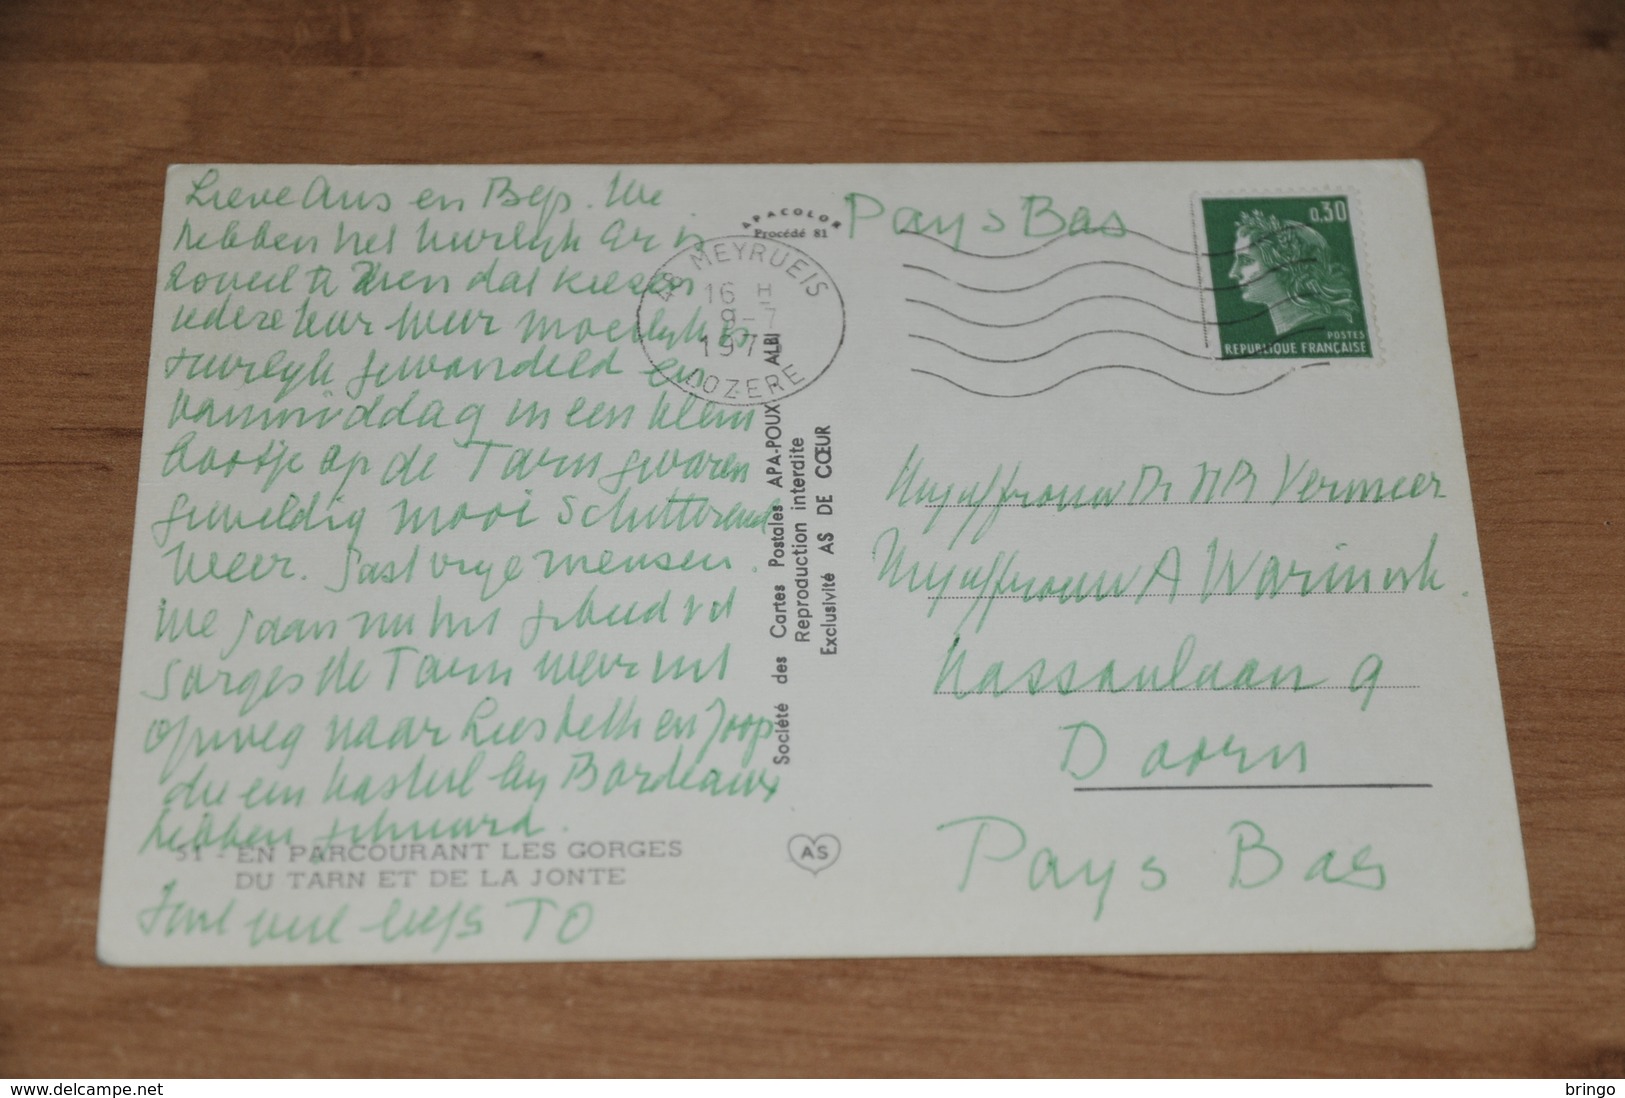 Lieve Ans en Bep. We
hebben het heerlijk Er is
zoveel te zien dat kiezen
iedere keer weer moeilijk is
heerlijk gewandeld en
vanmiddag in een klein
bootje op de Tarn gevaren
geweldig mooi Schitterend
weer. Hartelijke mensen.
We gaan nu het gebied v d
Gorges de Tarn weer uit
op weg naar Liesbeth en Joop
die een kasteel bij Bordeaux
hebben gehuurd.
51 - EN PARCOURANT LES GORGES
DU TARN ET DE LA JONTE
veel liefs TO
APACOLOR
Procédé 81
Société des Cartes Postales APA-POUX ALBI
Reproduction interdite
Exclusivité AS DE CŒUR
AS
48 MEYRUEIS
16 H
8-7
197
LOZERE
Pays Bas
0,30
POSTES
REPUBLIQUE FRANÇAISE
Mejuffrouw Dr HB Vermeer
Mejuffrouw A Warnink
Nassaulaan 9
Doorn
Pays Bas
bringo
© delcampe.net